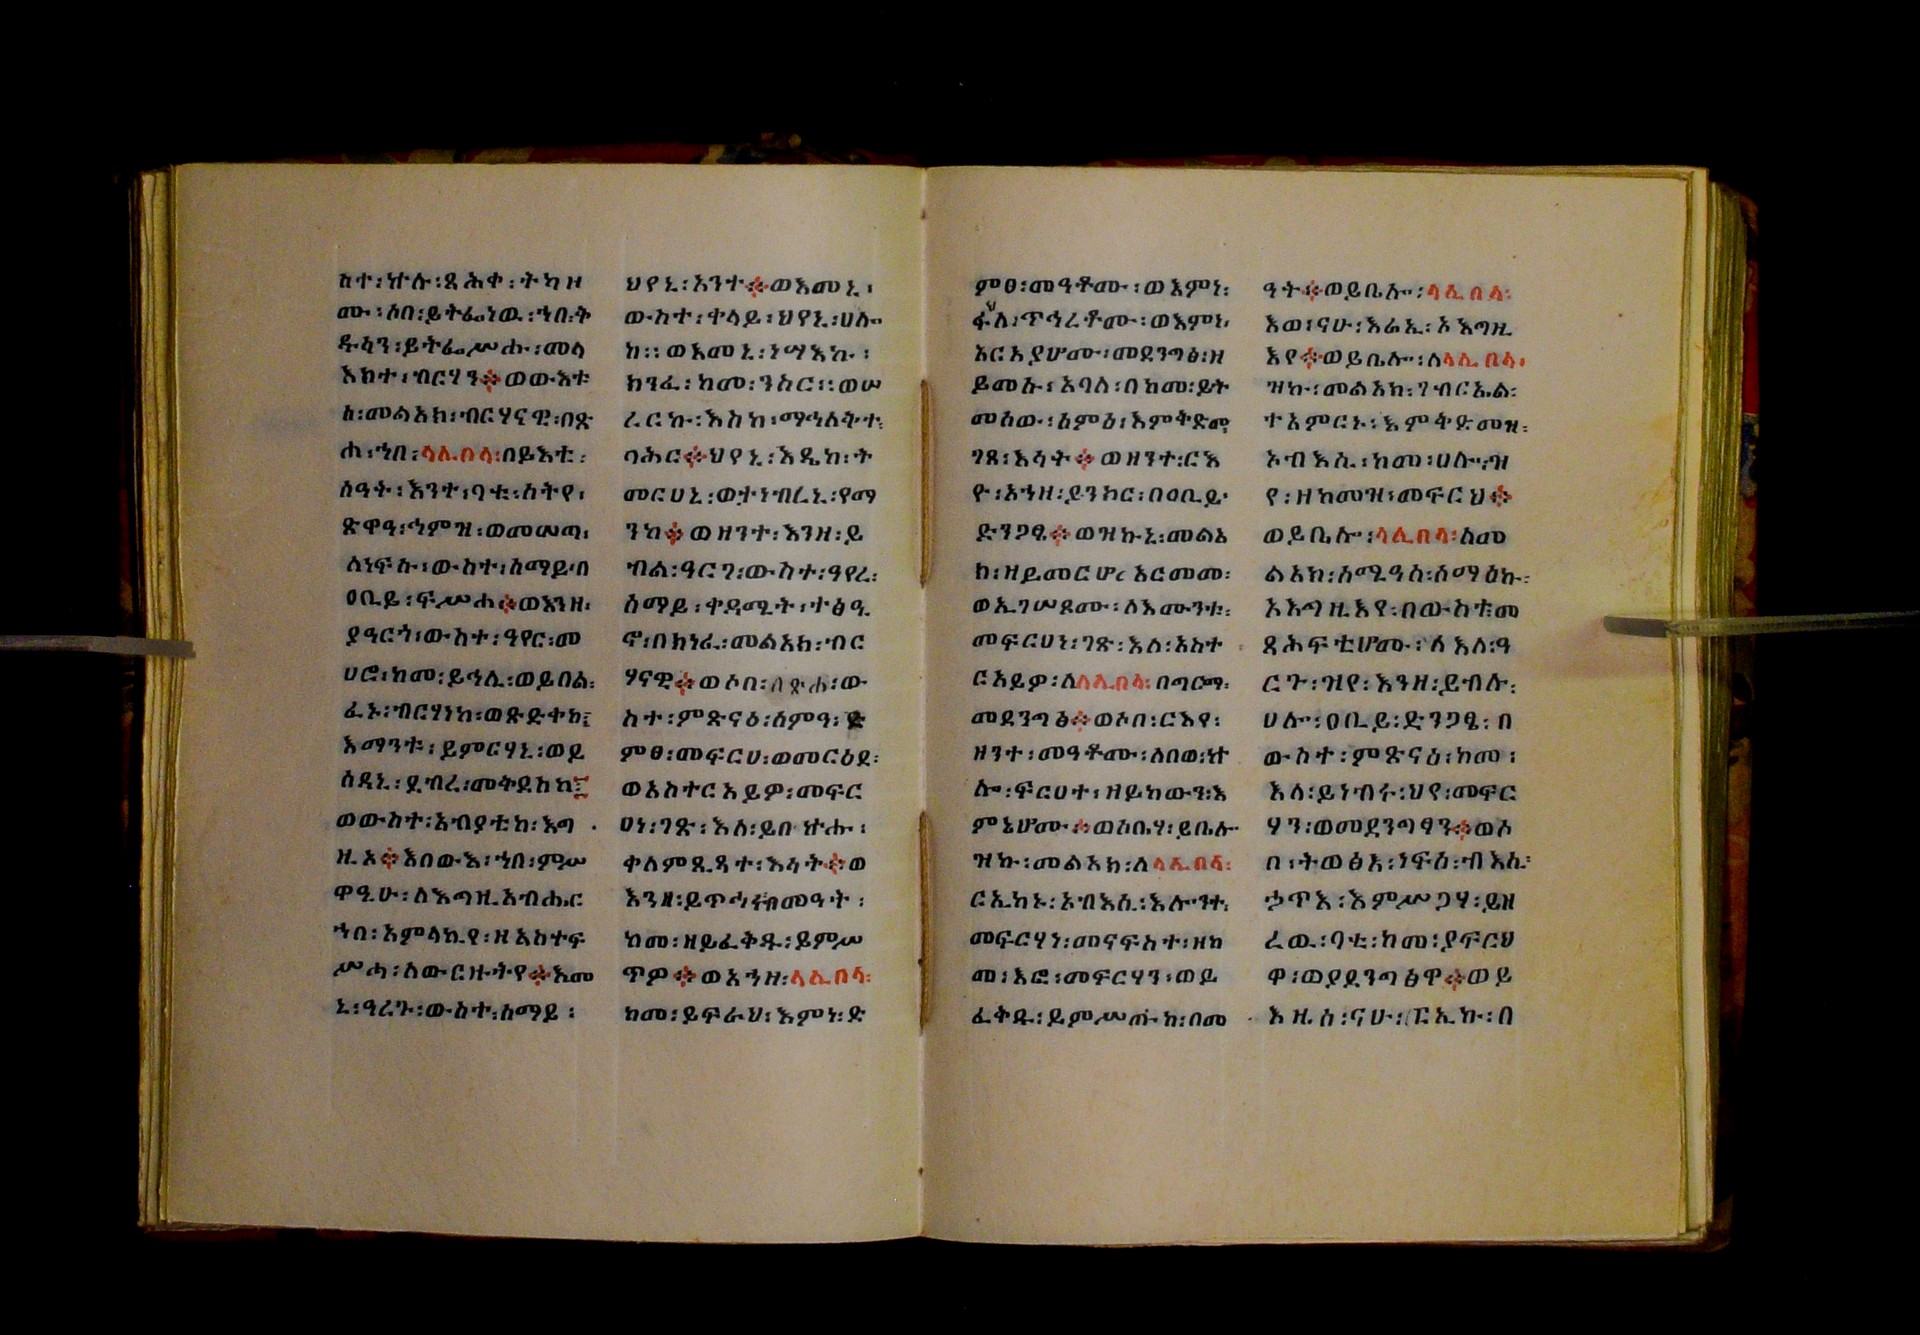 ስተ፡ኵሉ፡ጸሕቀ፡ትካዘ
ሙ፡ሶበ፡ይትፌነዉ፡ኀበ፡ቅ
ዱሳን፡ይትፌሥሑ፡መላ
እክተ፡ብርሃን፨ወውእቱ
ሰ፡መልአክ፡ብርሃናዊ፡በጽ
ሐ፡ኀበ፡ላሊበላ፡በይእቲ፡
ሰዓት፡እንተ፡ባቲ፡ስትየ፡
ጽዋዓ፡ሕምዝ፡ወመሠጣ፡
ለነፍሱ፡ውስተ፡ሰማይ፡በ
ዐቢይ፡ፍሥሐ፨ወእንዘ፡
ያዓርጎ፡ውስተ፡ዓየር፡መ
ሀሮ፡ከመ፡ይኅሊ፡ወይበል፡
ፈኑ፡ብርሃነከ፡ወጽድቀከ፤
እማንቱ፡ይምርሃኒ፡ወይ
ሰዳኒ፡ደብረ፡መቅደስከ፤
ወውስተ፡አብያቲከ፡እግ
ዚኦ፨እበውእ፡ኀበ፡ምሥ
ዋዒሁ፡ለእግዚአብሔር
ኀበ፡አምላኪየ፡ዘአስተፍ
ሥሓ፡ለውርዙትየ፨እመ
ኒ፡ዓረጉ፡ውስተ፡ሰማይ፡
ህየኒ፡አንተ፨ወእመኒ፡
ውስተ፡ቀላይ፡ህየኒ፡ሀሎ
ከ፡፡ወእመኒ፡ነሣእኩ፡
ክንፈ፡ከመ፡ንስር፡፡ወሠ
ረርኩ፡እስከ፡ማኅለቅተ፡
ባሕር፨ህየኒ፡እዴከ፡ት
መርሀኒ፡ወታነብረኒ፡የማ
ንከ፨ወዘንተ፡እንዘ፡ይ
ብል፡ዓርገ፡ውስተ፡ዓየረ፡
ሰማይ፡ቀዳሚት፡ተፅዒ
ኖ፡በክነፈ፡መልአክ፡ብር
ሃናዊ፨ወሶበ፡በጽሐ፡ው
ስተ፡ምጽናዕ፡ሰምዓ፡ድ
ምፀ፡መፍርሀ፡ወመርዕደ፡
ወአስተርአይዎ፡መፍር
ሀነ፡ገጽ፡እለ፡ይበኵሑ፡
ቀለምጺጻተ፡እሳት፨ወ
እንዘ፡ይጥሓሩከመዓት፡
ከመ፡ዘይፈቅዱ፡ይምሥ
ጥዎ፨ወአኀዘ፡ላሊበላ፡
ከመ፡ይፍራህ፡እምነ፡ድ
ምፀ፡መዓቶሙ፡ወእምነ፡
ኃይለ፡ጥኅረቶሙ፡ወእምነ፡
አርአያሆሙ፡መደንግፅ፡ዘ
ይመኩ፡አባለ፡በከመ፡ይት
መሰው፡ሰምዕ፡እምቅድመ
ገጸ፡እሳት፨ወዘንተ፡ርእ
ዮ፡አኀዘ፡ይንክር፡በዐቢይ
ድንጋፄ፨ወዝኩኒ፡መልአ
ከ፡ዘይመርሆ፡አርመመ፡
ወኢገሠጾሙ፡ለእሙንቱ፡
መፍርሀነ፡ገጽ፡እለ፡አስተ
ርአይዎ፡ለላሊበላ፡በግርማ፡
መደንግፅ፨ወሶበ፡ርእየ፡
ዘንተ፡መዓቶሙ፡ለበወ፡ኵ
ሎ፡ፍርሀተ፡ዘይከውን፡እ
ምኔሆሙ፨ወሰቤሃ፡ይቤሎ
ዝኩ፡መልአክ፡ለላሊበላ፡
ርኢከኑ፡ኦብእሲ፡እሎንተ፡
መፍርሃነ፡መናፍስተ፡ዘከ
መ፡እፎ፡መፍርሃን፡ወይ
ፈቅዱ፡ይምሥጡከ፡በመ
ዓት፨ወይቤሎ፡ላሊበላ፡
እወ፡ናሁ፡እሬኢ፡ኦእግዚ
እየ፨ወይቤሎ፡ለላሊበላ፡
ዝኩ፡መልአክ፡ገብርኤል፡
ተአምርኑ፡እምቅድመዝ፡
ኦብእሲ፡ከመ፡ሀሎ፡ዝ
የ፡ዘከመዝ፡መፍርህ፨
ወይቤሎ፡ላሊበላ፡ለመ
ልአክ፡ሰሚዓስ፡ሰማዕኩ፡
ኦእግዚእየ፡በውስቱ፡መ
ጻሕፍቲሆሙ፡ለእለ፡ዓ
ርጉ፡ዝየ፡እንዘ፡ይብሉ፡
ሀሎ፡ዐቢይ፡ድንጋፄ፡በ
ውስተ፡ምጽናዕ፡ከመ፡
እለ፡ይነብሩ፡ህየ፡መፍር
ሃን፡ወመደንግፃን፨ወሶ
በ፡ትወፅእ፡ነፍሰ፡ብእሲ፡
ኃጥእ፡እምሥጋሃ፡ይዘ
ረዉ፡ባቲ፡ከመ፡ያፍርህ
ዋ፡ወያደንግፅዋ፨ወይ
እዜሰ፡ናሁ፡ርኢኩ፡በ